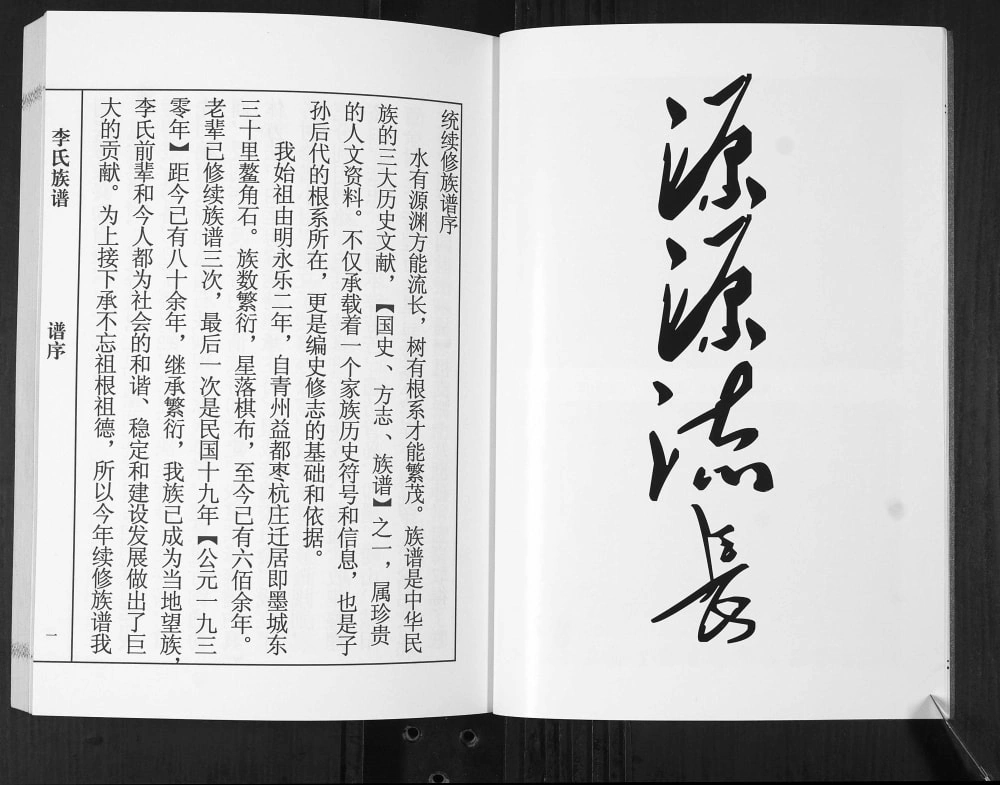 源源流长
统续修族谱序
水有源渊方能流长，树有根系才能繁茂。族谱是中华民
族的三大历史文献，【国史、方志、族谱】之一，属珍贵
的人文资料。不仅承载着一个家族历史符号和信息，也是子
孙后代的根系所在，更是编史修志的基础和依据。
我始祖由明永乐二年，自青州益都枣杭庄迁居即墨城东
三十里鳌角石。族数繁衍，星落棋布，至今已有六佰余年。
老辈已修续族谱三次，最后一次是民国十九年【公元一九三
零年】距今已有八十余年，继承繁衍，我族已成为当地望族，
李氏前辈和今人都为社会的和谐、稳定和建设发展做出了巨
大的贡献。为上接下承不忘祖根祖德，所以今年续修族谱我
李氏族谱
谱序
一